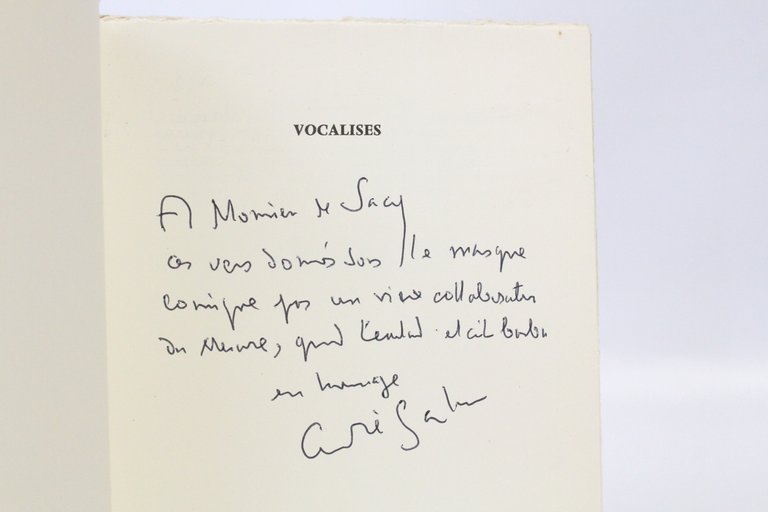 VOCALISES
A Monsieur de Sacy
ces vers donnés sous le masque
comique par un vieux collaborateur
du Mercure, quand Léautaud était barbu
en hommage
André Salmon